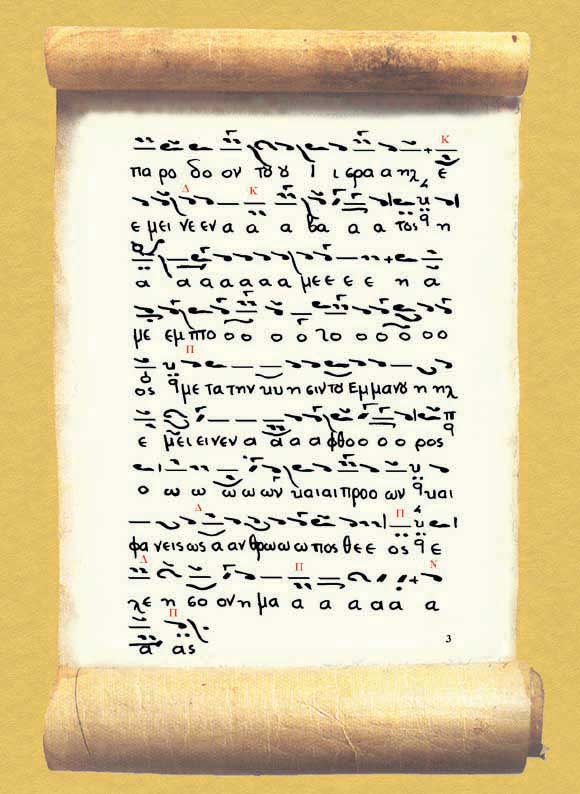 Κ
πα ρο δο ον του ου Ι ι σρα α ηλ ε
Δ Κ
ε μει νε εν α α α βα α α τος η
α α α α α α α με ε ε ε η α
με εμ πτο ο ο ο ο ο ο ο ο ο
Π
ος με τα την κυ η σιν του Εμ μα νου η ηλ
ε μει ει νεν α α α α φθο ο ο ο ρος
ο ω ω ω ω ων και αι προ ο ων και
Δ Π
φα νεις ως α αν θρω ω ω πος θε ε ος ε
Δ Π Ν
λε η σο ον η μα α α α α α α
Π
α ας
3